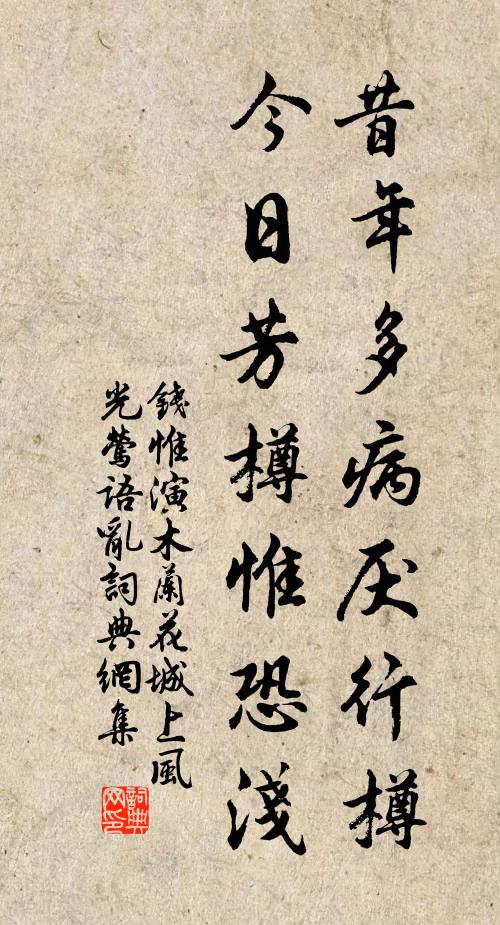 昔年多病厌行樽
今日芳樽惟恐淺
錢惟演木蘭花城上風
光鶯語亂詞典網集
詞典
网印